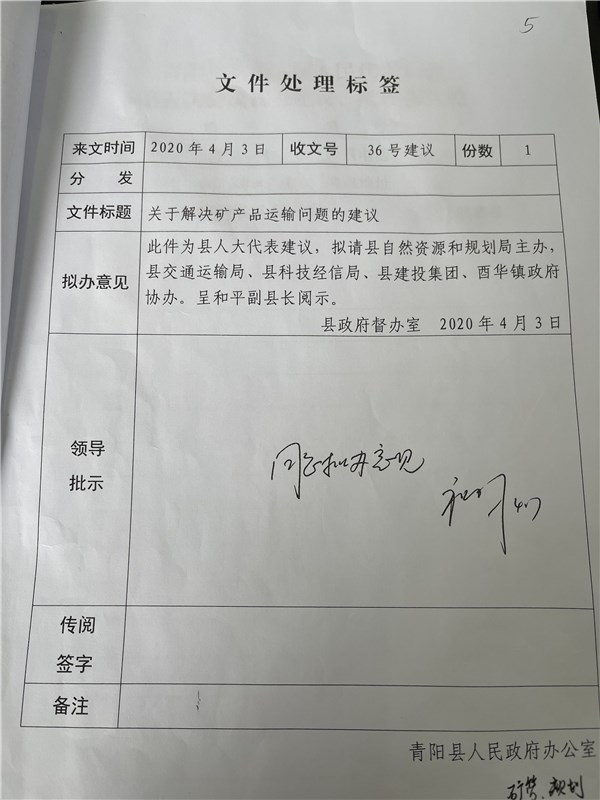 5
文件处理标签
来文时间 2020年4月3日 收文号 36号建议 份数 1
分 发
文件标题 关于解决矿产品运输问题的建议
拟办意见
此件为县人大代表建议，拟请县自然资源和规划局主办，
县交通运输局、县科技经信局、县建投集团、酉华镇政府
协办。呈和平副县长阅示。
县政府督办室 2020年4月3日
领导
批示
同意拟办意见
传阅
签字
备注
青阳县人民政府办公室
矿管、规划